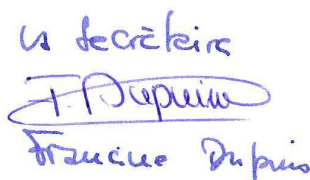 la Secrétaire
F. Dupuis
Francine Dupuis